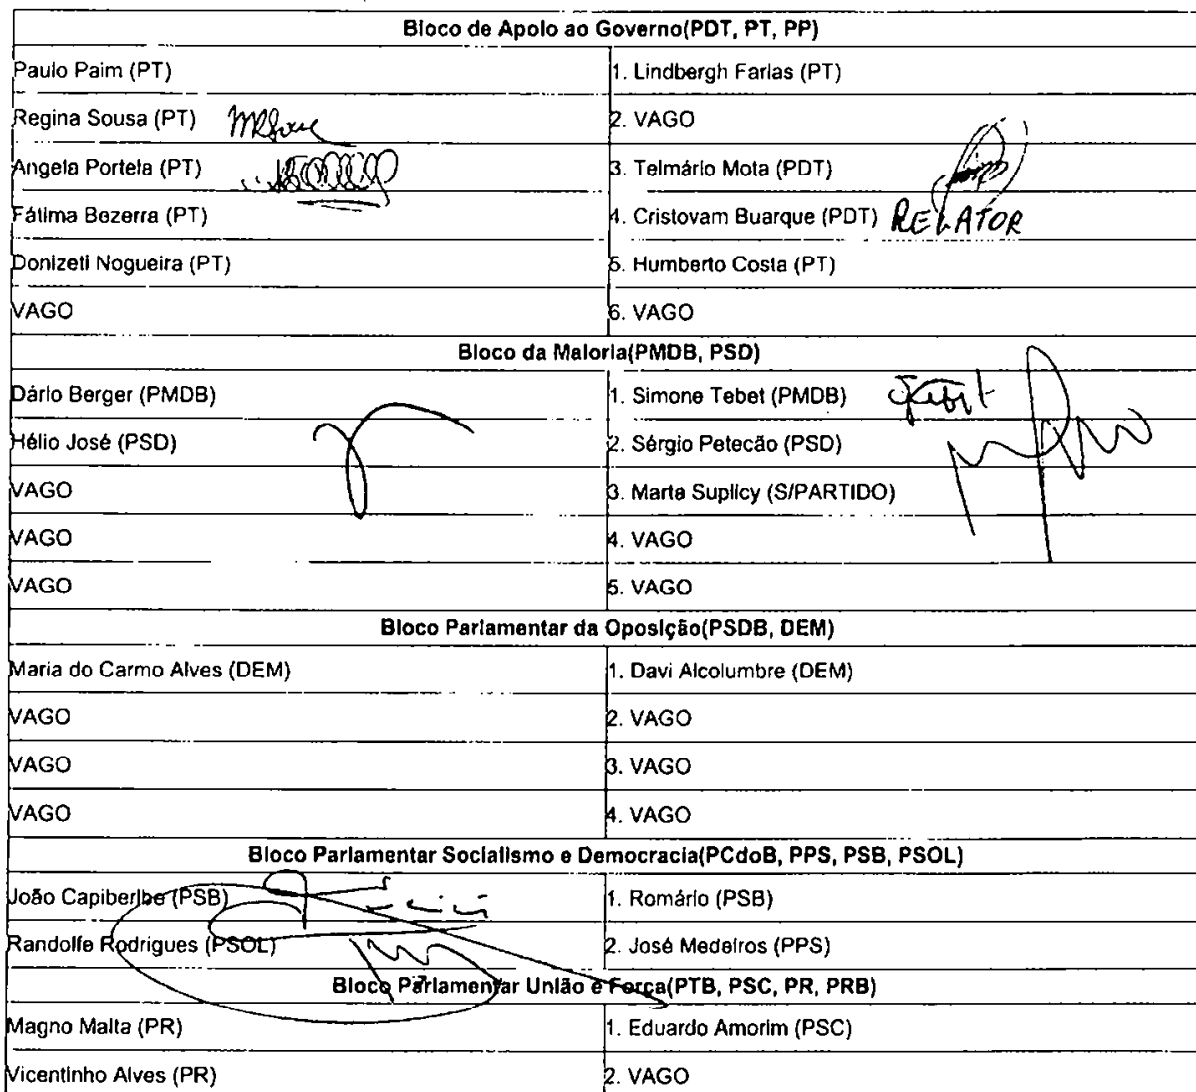 Bloco de Apoio ao Governo(PDT, PT, PP)
Paulo Paim (PT) 1. Lindbergh Farias (PT)
Regina Sousa (PT) 2. VAGO
Angela Portela (PT) 3. Telmário Mota (PDT)
Fátima Bezerra (PT) 4. Cristovam Buarque (PDT) RELATOR
Donizeti Nogueira (PT) 5. Humberto Costa (PT)
VAGO 6. VAGO
Bloco da Maioria(PMDB, PSD)
Dário Berger (PMDB) 1. Simone Tebet (PMDB)
Hélio José (PSD) 2. Sérgio Petecão (PSD)
VAGO 3. Marta Suplicy (S/PARTIDO)
VAGO 4. VAGO
VAGO 5. VAGO
Bloco Parlamentar da Oposição(PSDB, DEM)
Maria do Carmo Alves (DEM) 1. Davi Alcolumbre (DEM)
VAGO 2. VAGO
VAGO 3. VAGO
VAGO 4. VAGO
Bloco Parlamentar Socialismo e Democracia(PCdoB, PPS, PSB, PSOL)
João Capiberibe (PSB) 1. Romário (PSB)
Randolfe Rodrigues (PSOL) 2. José Medeiros (PPS)
Bloco Parlamentar União e Força(PTB, PSC, PR, PRB)
Magno Malta (PR) 1. Eduardo Amorim (PSC)
Vicentinho Alves (PR) 2. VAGO